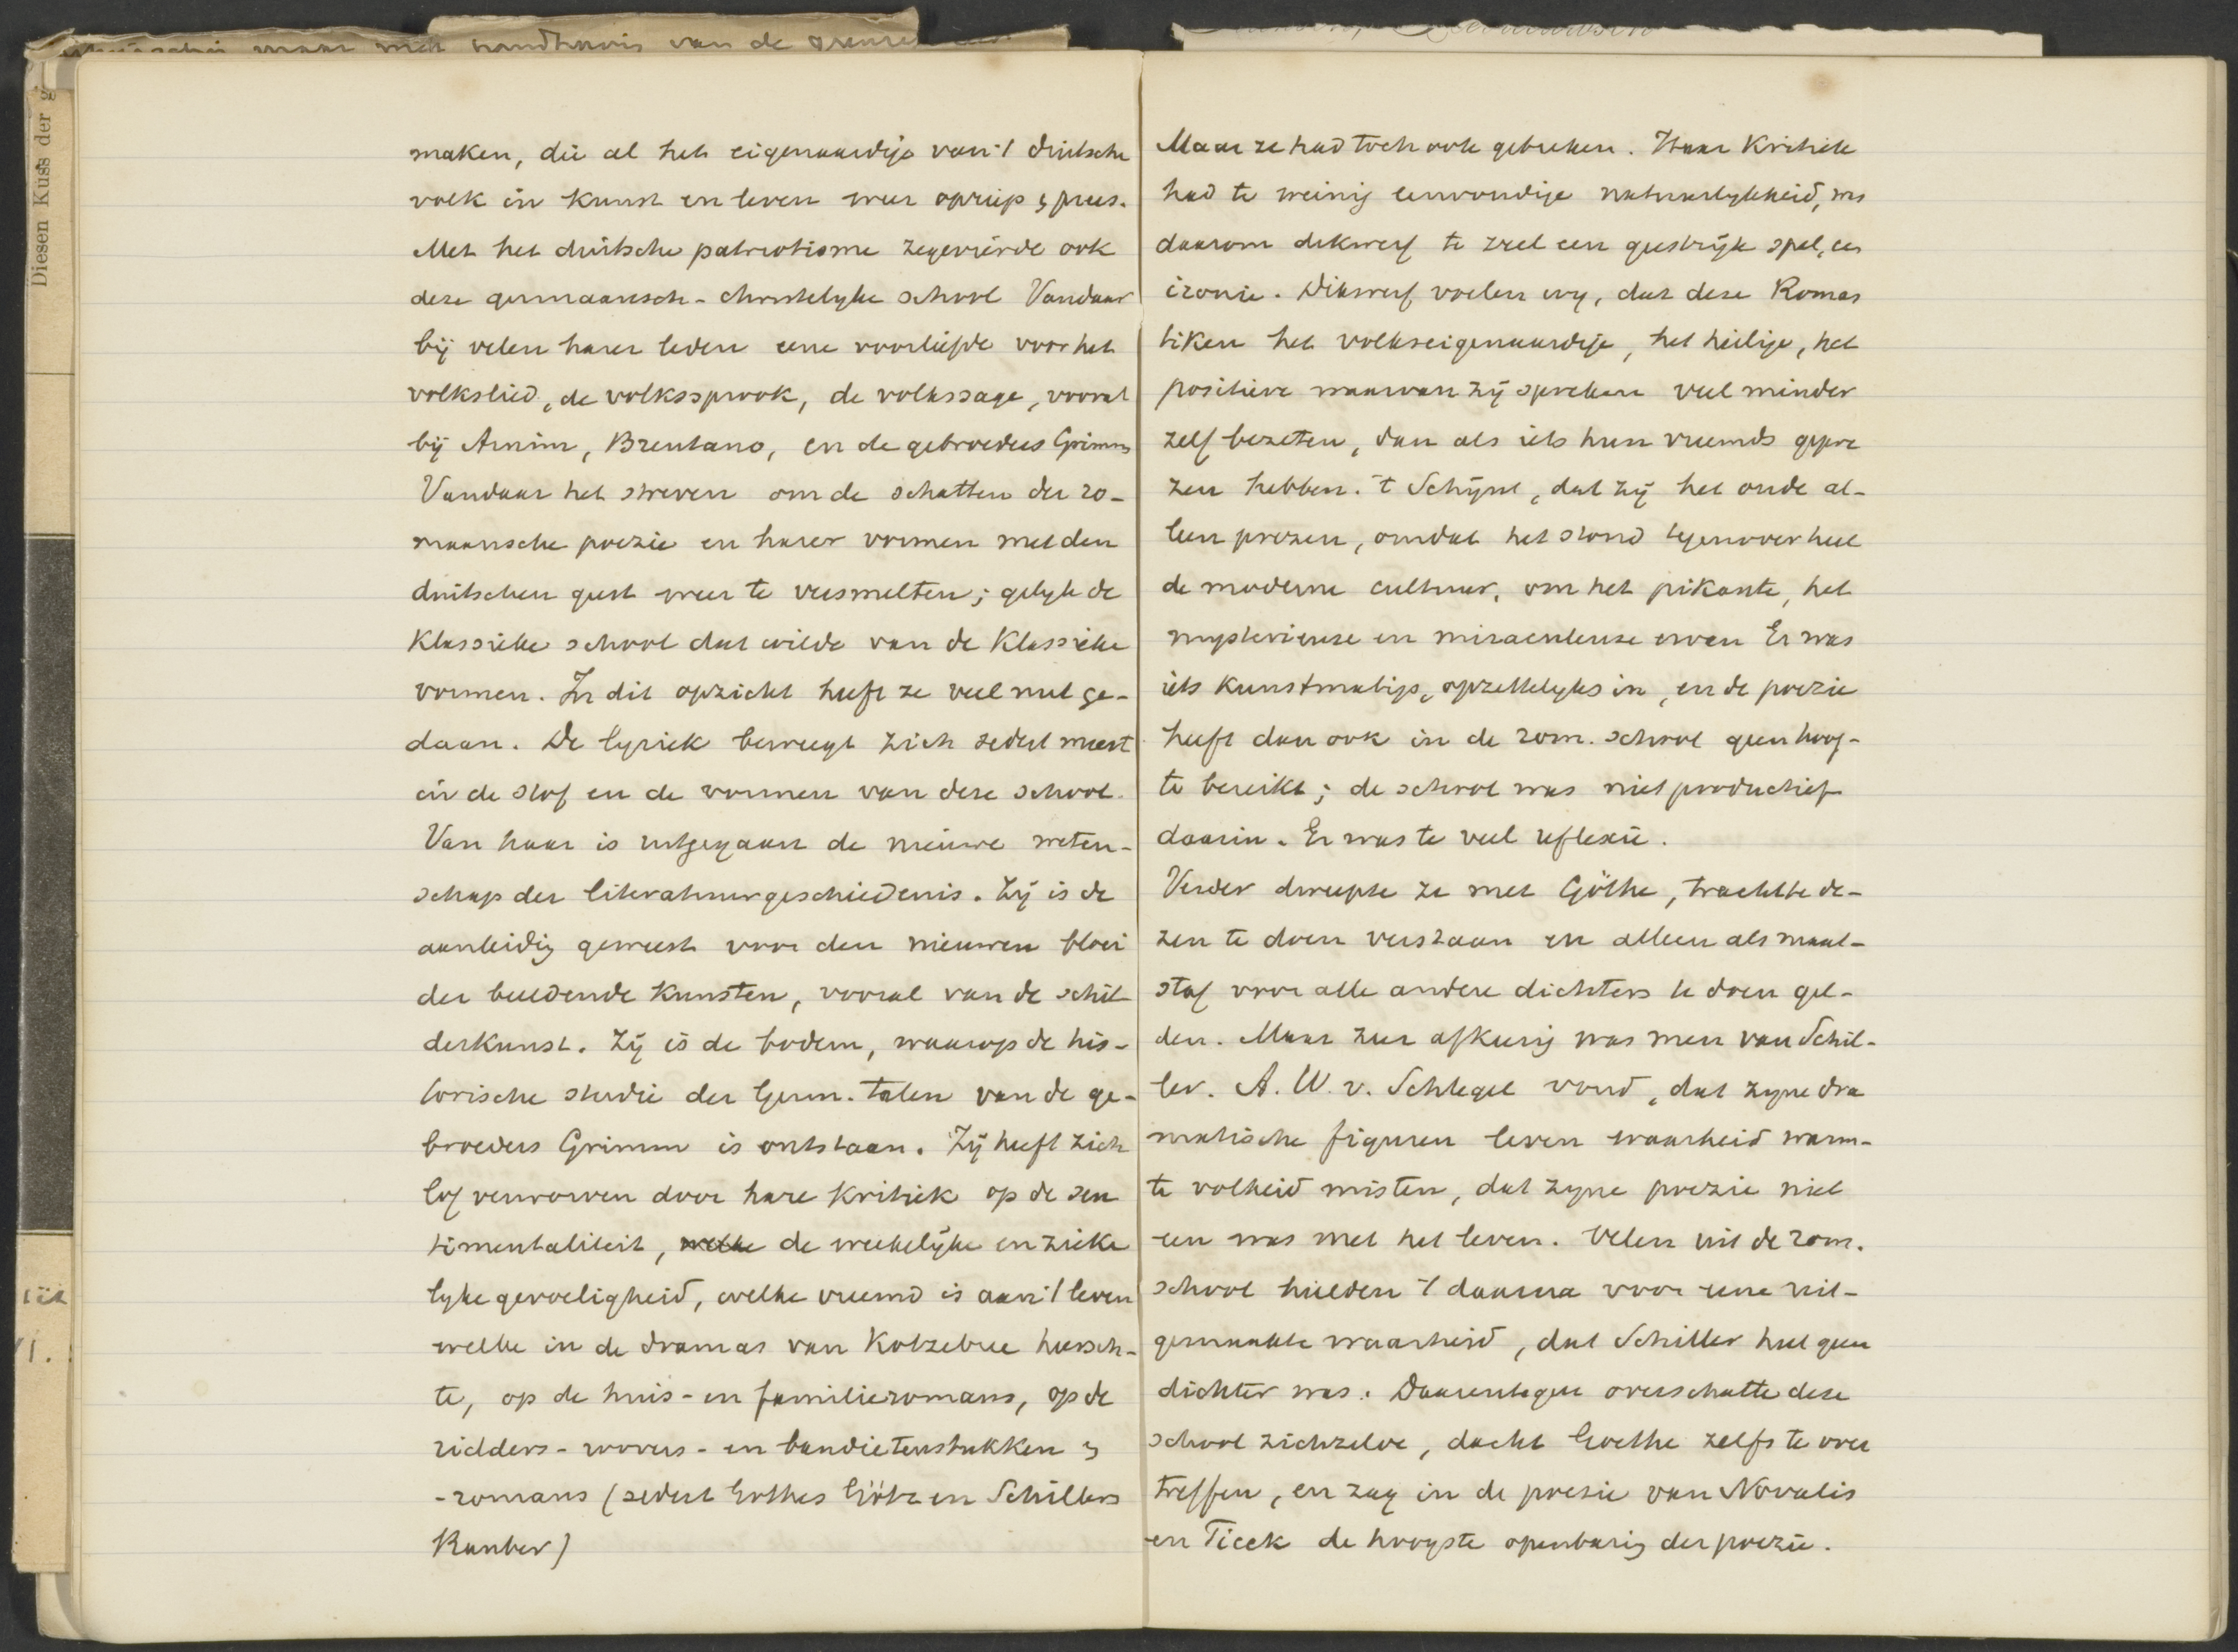 maar met handhavig van de
Diesen Kuss der g
maken, die al het eigenaardige van 't duitsche
volk in kunst en leven weer opriep & prees.
Met het duitsche patriotisme zegevierde ook
deze germaansch-christelyke school Vandaar
bij velen harer leden eene voorliefde voor het
volkslied, de volkssprook, de volkssage, vooral
bij Arnim, Brentano, en de gebroeders Grimm
Vandaar het streven om de schatten der ro-
maansche poezie en harer vormen met den
duitschen geest weer te versmelten; gelyk de
klassieke school dat wilde van de klassieke
vormen. In dit opzicht heeft ze veel nut ge-
daan. De lyriek beweegt zich sedert meest
in de stof en de vormen van deze school.
Van haar is uitgegaan de nieuwe weten-
schap der literatuurgeschiedenis. Zij is de
aanleidig geweest voor den nieuwen bloei
der beeldende kunsten, vooral van de schil
derkunst. Zij is de bodem, waarop de his-
torische studie der Germ. talen van de ge-
broeders Grimm is ontstaan. Zij heeft zich
lof verworven door hare kritiek op de sen
timentaliteit, welke de weekelijke en zieke
lyke gevoeligheid, welke vreemd is aan 't leven
welke in de dramas van Kotzebue heersch-
te, op de huis- en familieromans, op de
ridders- roovers- en bandietenstukken &
-romans (sedert Gothes Götz en Schillers
Rauber)
Maar ze had toch ook gebreken. Haar Kritiek
had te weinig eenvoudige natuurlykheid, was
daarom dikwerf te zeel een geestrijk spel, een
ironie. Dikwerf voelen wy, dat deze Roman
tiken het volkseigenaardige, het heilige, het
positieve waarvan zij spreken veel minder
zelf bezeten, dan als iets hun vreemds gepre
zen hebben. 't Schijnt, dat zij het oude al-
leen prezen, omdat het stond tegenover heel
de moderne cultuur, om het pikante, het
mysterieuse en miraculeuse ervan Er was
iets kunstmatigs, opzettelyks in, en de poezie
heeft dan ook in de rom. school geen hoog-
te bereikt; de school was niet productief
daarin. Er was te veel reflexie.
Verder dweepte ze met Göthe, trachtte de-
zen te doen verstaan en alleen als maat-
staf voor alle andere dichters te doen gel-
den. Maar zeer afkeerig was men van Schil-
ler. A. W. v. Schlegel vond, dat zyne dra
matische figuren leven waarheid warm-
te volheid misten, dat zyne poezie niet
een was met het leven. Velen uit de rom.
school hielden 't daarna voor eene uit-
gemaakte waarheid, dat Schiller heel geen
dichter was. Daarentegen overschatte deze
school zichzelve, dacht Goethe zelfs te over
treffen, en zag in de poesie van Novalis
en Tieck de hoogste openbarig der poezie.